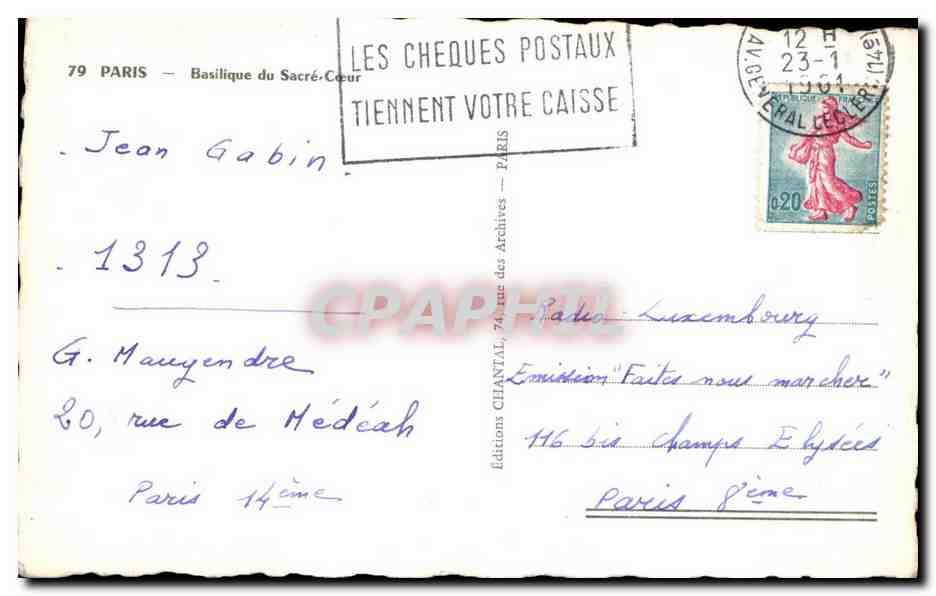 79 PARIS — Basilique du Sacré-Cœur
LES CHEQUES POSTAUX
TIENNENT VOTRE CAISSE
12 H
23-1
1961
AV. GENERAL LECLERC (14E)
REPUBLIQUE FRANÇAISE
0,20
POSTES
- Jean Gabin
- 1313 -
G. Maugendre
20, rue de Médéah
Paris 14ème
Éditions CHANTAL, 74, rue des Archives — PARIS
CPAPHIL
Radio-Luxembourg
Emission "Faites nous marcher"
116 bis Champs Elysées
Paris 8ème